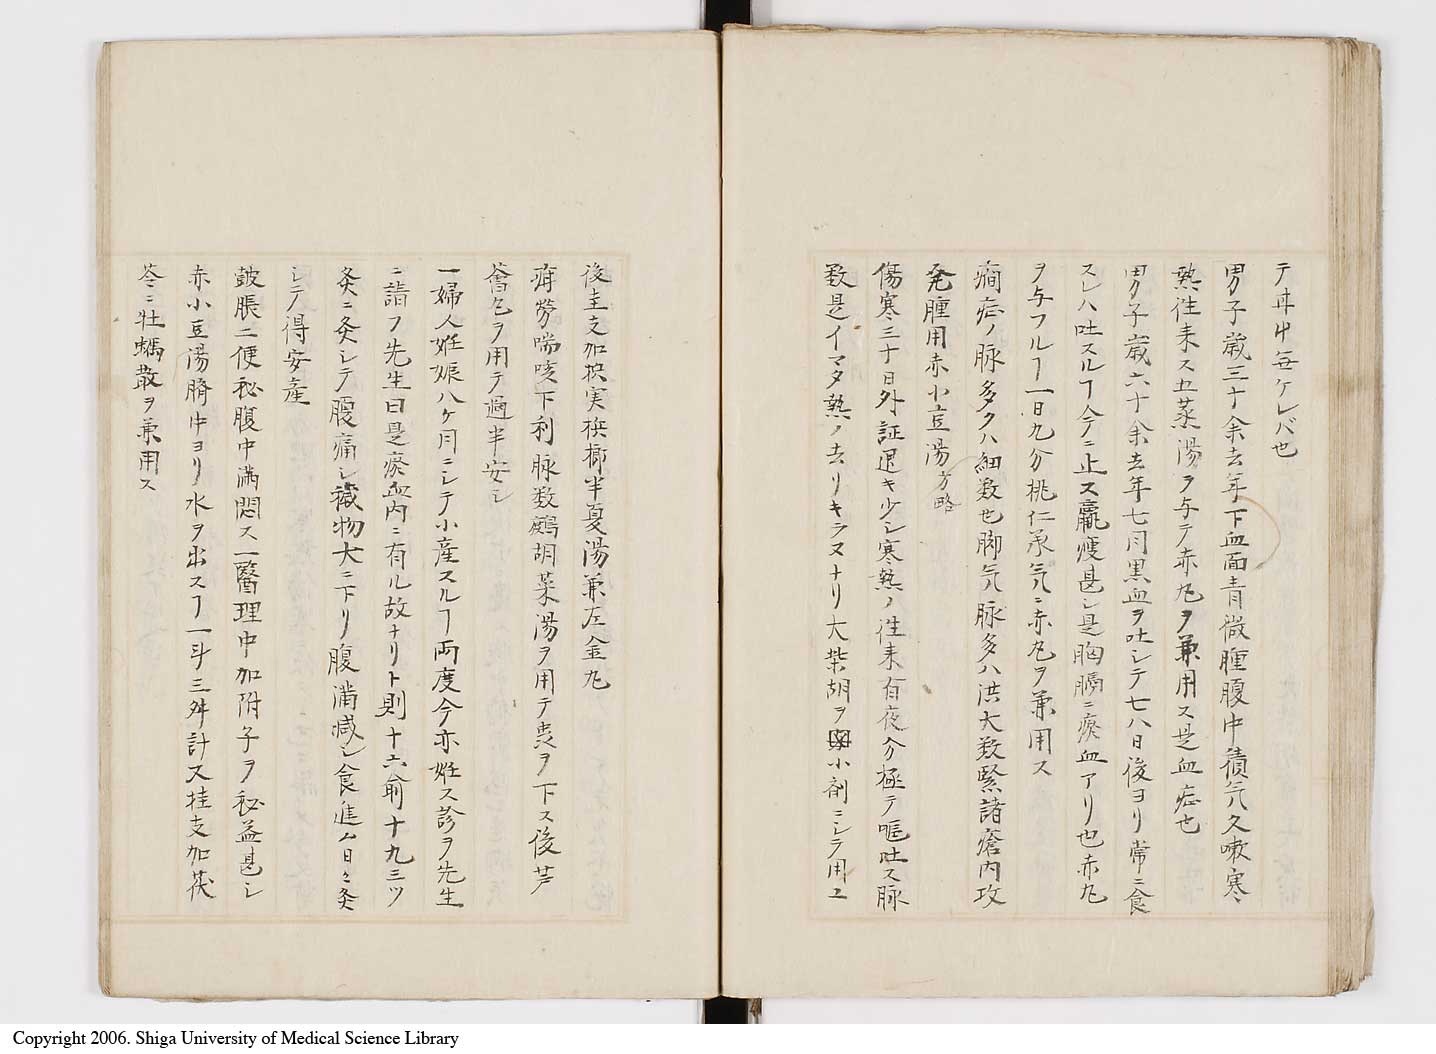 テヰル毎ケレバ也
男子歳三十余去年下血面青微腫腹中積気久嗽寒
熱往来ス五蒸湯ヲ与テ赤丸ヲ兼用ス是血症也
男子歳六十余去年七月黒血ヲ吐シテ七八日後ヨリ常ニ食
スレハ吐スルヿ今ニ止ス羸痩甚シ是胸膈ニ瘀血アリ也赤丸
ヲ与フルヿ一日九分桃仁承気ニ赤丸ヲ兼用ス
癎症ノ脉多クハ細数也脚気脉多ハ洪大数緊諸瘡内攻
発腫用赤小豆湯方略
傷寒三十日外証退キ少シ寒熱ノ往来有夜分極テ嘔吐ス脉
数是イマタ熱ノ去リキラヌナリ大柴胡ヲ小剤ニシテ用ユ
後圭支加枳実梹榔半夏湯兼左金丸
痏労喘咳下利脉数鷓胡菜湯ヲ用テ衷ヲ下ス後芦
薈丸ヲ用テ過半安シ
一婦人妊娠八ケ月ニシテ小産スルヿ両度今亦妊ス診ヲ先生
ニ請フ先生曰是瘀血内ニ有ル故ナリト則十六俞十九三ツ
灸ニ灸シテ腹痛シ穢物大ニ下リ腹満減シ食進ム日々灸
シテ得安産
鼓脹二便秘腹中満悶ス一醫理中加附子ヲ秘益甚シ
赤小豆湯臍中ヨリ水ヲ出スヿ一斗三舛計又桂支加茯
苓ニ牡蠣散ヲ兼用ス
Copyright 2006. Shiga University of Medical Science Library